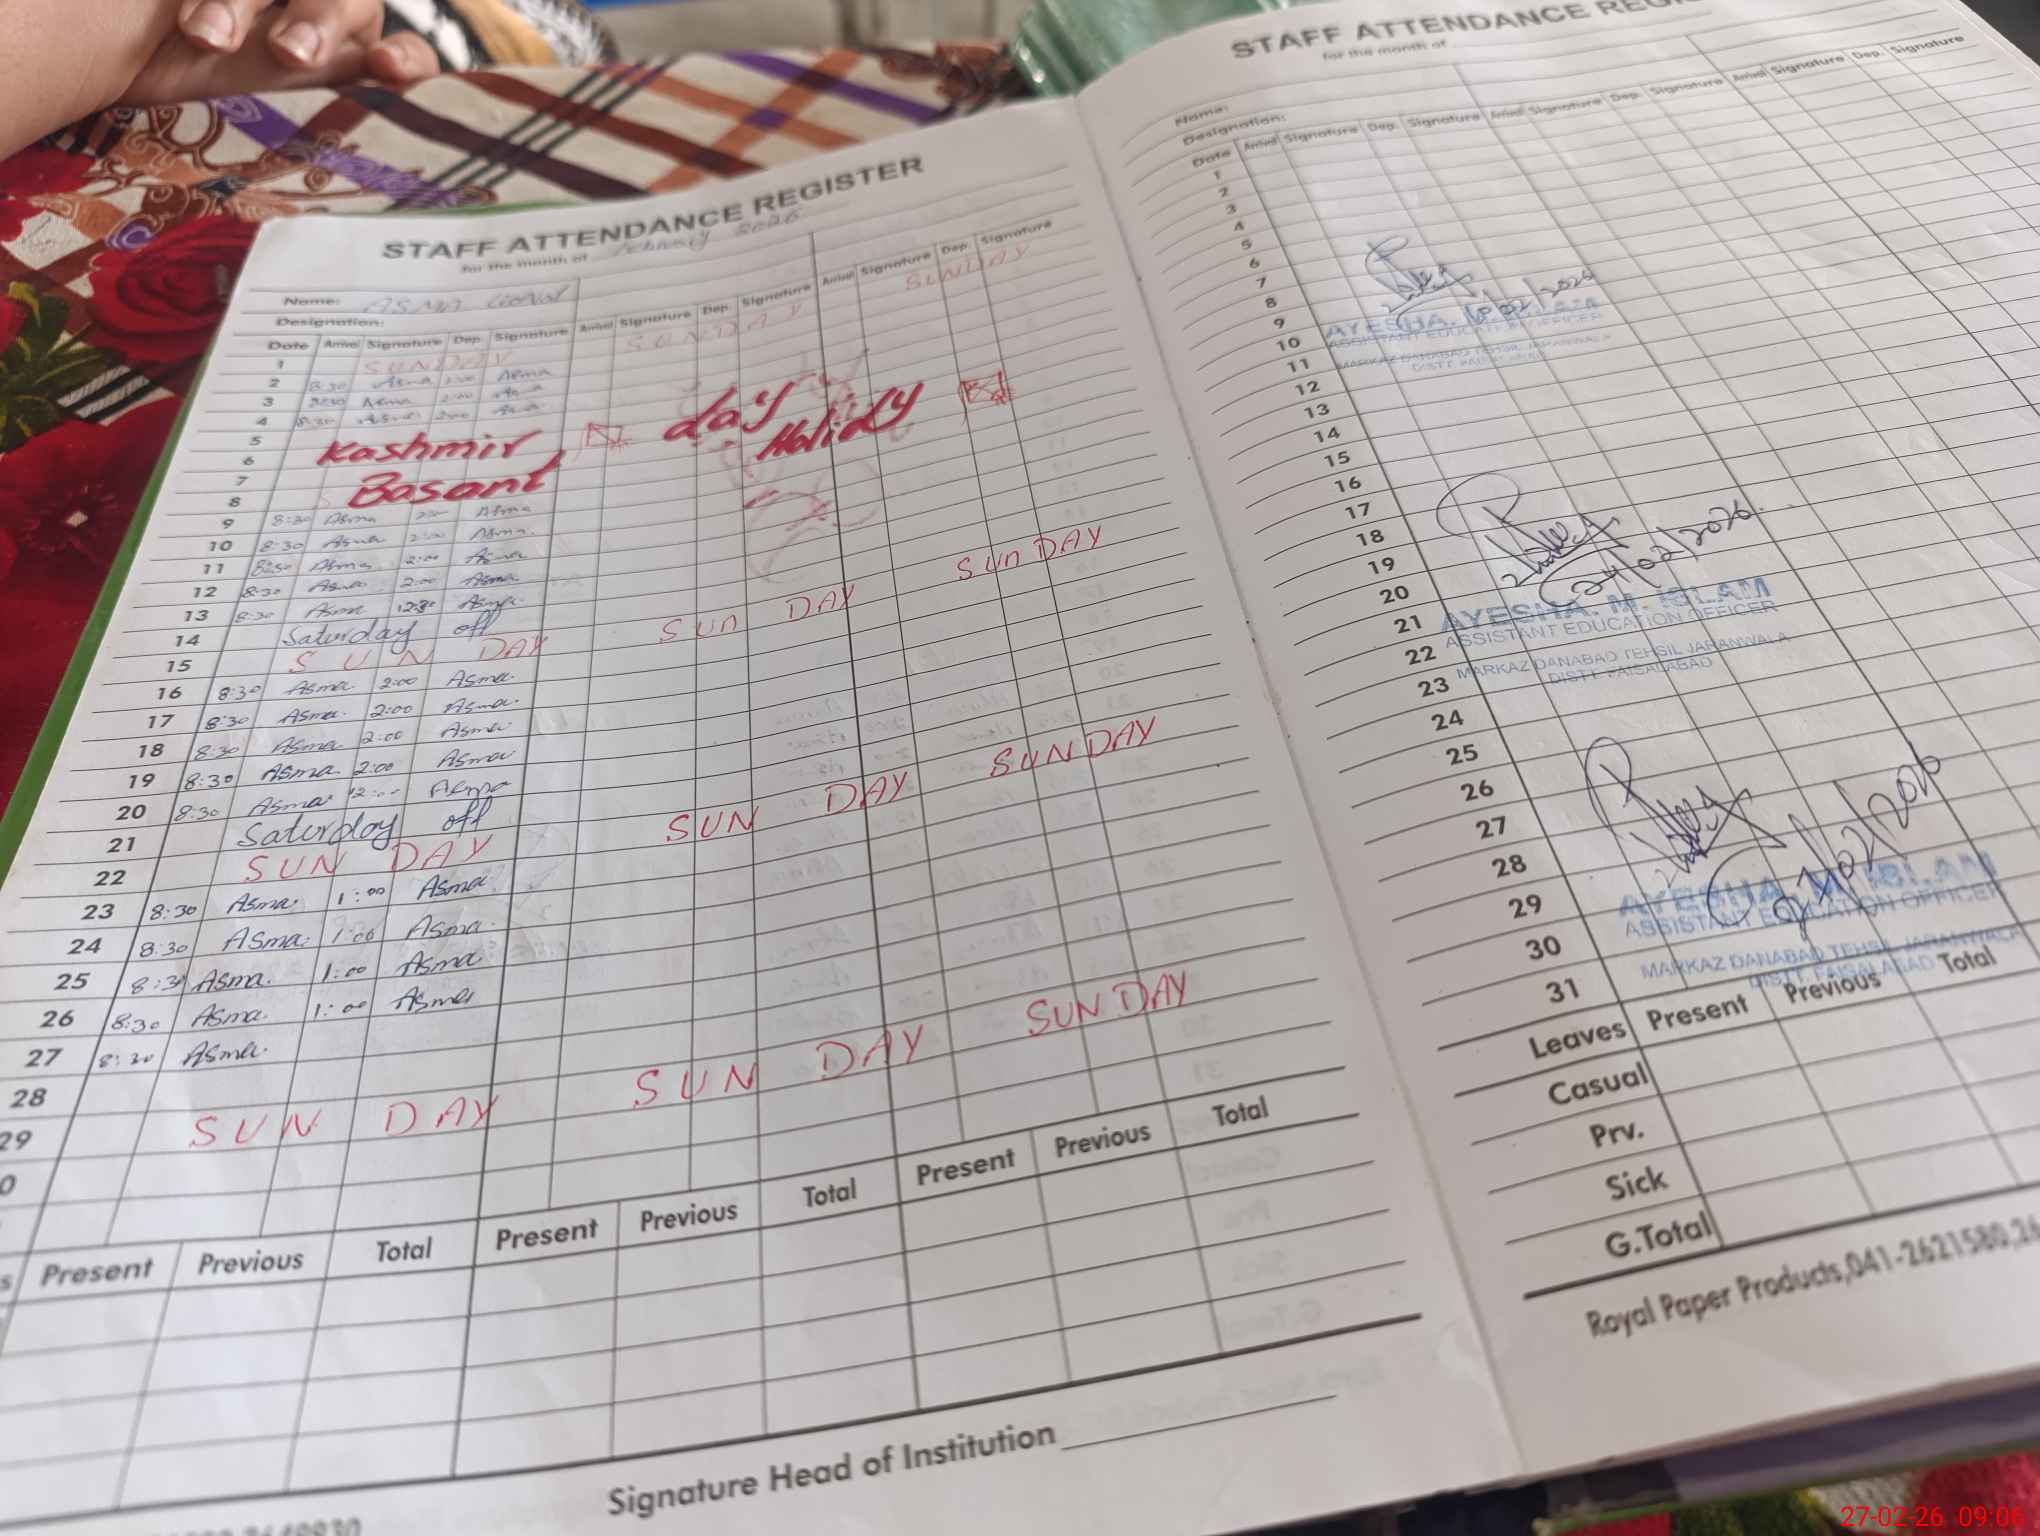 STAFF ATTENDANCE REGISTER
for the month of February 2026
Name: ASMA
Designation:
Date Arrival Signature Dep. Signature Arrival Signature Dep. Signature Arrival Signature Dep. Signature
1 SUNDAY SUNDAY SUNDAY
2 8:30 Asma 2:00 Asma
3 8:30 Asma 2:00
4 8:30 2:00
5 Kashmir day
6 Basant Holidy
7
8
9 8:30 Asma 2:00 Asma
10 8:30 Asma 2:00 Asma
11 8:30 Asma 2:00 Asma
12 8:30 Asma 2:00 Asma
13 8:30 Asma 12:30 Asma
14 Saturday off
15 SUN DAY SUN DAY SUNDAY
16 8:30 Asma 2:00 Asma
17 8:30 Asma 2:00 Asma
18 8:30 Asma 2:00 Asma
19 8:30 Asma 2:00 Asma
20 8:30 Asma 12:00 Asma
21 Saturday off
22 SUN DAY SUN DAY SUNDAY
23 8:30 Asma 1:00 Asma
24 8:30 Asma 1:00 Asma
25 8:30 Asma 1:00 Asma
26 8:30 Asma 1:00 Asma
27 8:30 Asma
28
29 SUN DAY SUN DAY SUNDAY
0
s Present Previous Total Present Previous Total Present Previous Total
Signature Head of Institution
STAFF ATTENDANCE
for the month of
Name:
Designation:
Date Arrival Signature Dep. Signature Arrival Signature Dep. Signature Arrival Signature Dep. Signature
1
2
3
4
5
6
7
8
9
10
11
12
13
14
15
16
17
18
19
20
21
22
23
24
25
26
27
28
29
30
31
AYESHA. M. ISLAM
ASSISTANT EDUCATION OFFICER
MARKAZ DANABAD TEHSIL JARANWALA
DISTT. FAISALABAD
24/02/2026
AYESHA. M. ISLAM
ASSISTANT EDUCATION OFFICER
MARKAZ DANABAD TEHSIL JARANWALA
DISTT. FAISALABAD
27/02/2026
AYESHA. M. ISLAM
ASSISTANT EDUCATION OFFICER
MARKAZ DANABAD TEHSIL JARANWALA
DISTT. FAISALABAD
Leaves Present Previous Total
Casual
Prv.
Sick
G.Total
Royal Paper Products,041-2621580,26
27-02-26 09:06